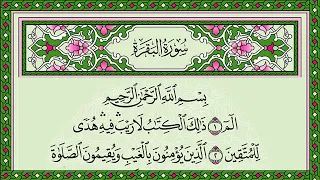 سُورَةُ البَقَرَةِ
بِسْمِ اللَّهِ الرَّحْمَٰنِ الرَّحِيمِ
الٓمٓ ١ ذَٰلِكَ الْكِتَٰبُ لَا رَيْبَ فِيهِ هُدًى
لِّلْمُتَّقِينَ ٢ الَّذِينَ يُؤْمِنُونَ بِالْغَيْبِ وَيُقِيمُونَ الصَّلَوٰةَ